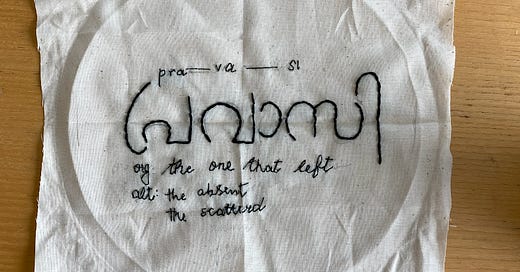 pra — va — si
പ്രവാസി
og the one that left
alt: the absent
the scatterd